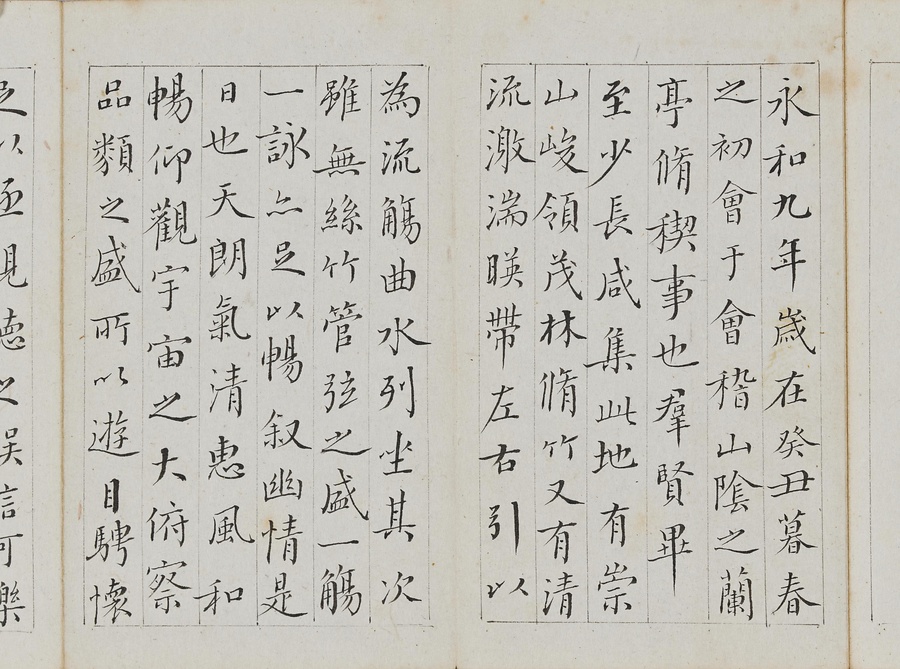 永和九年歲在癸丑暮春
之初會于會稽山陰之蘭
亭脩稧事也羣賢畢
至少長咸集此地有崇
山峻領茂林脩竹又有清
流激湍暎帶左右引以
為流觴曲水列坐其次
雖無絲竹管弦之盛一觴
一詠亦足以暢叙幽情是
日也天朗氣清惠風和
暢仰觀宇宙之大俯察
品類之盛所以遊目騁懷
足以之可樂